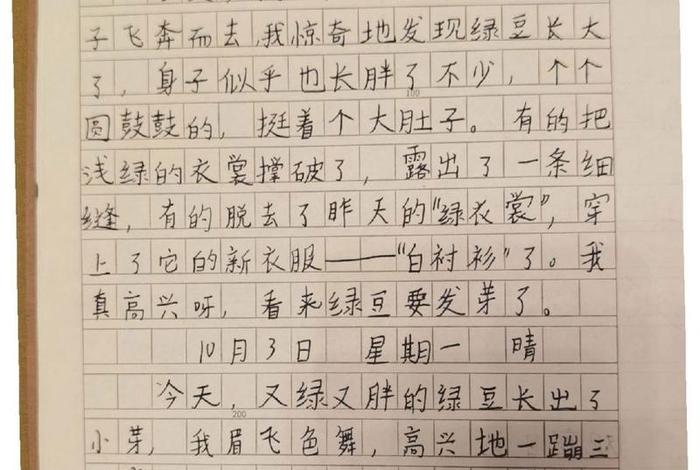 子飞奔而去,我惊奇地发现绿豆长大
了,身子似乎也长胖了不少,个个
100
圆鼓鼓的,挺着个大肚子。有的把
浅绿的衣裳撑破了,露出了一条细
缝,有的脱去了昨天的“绿衣裳”,穿
上了它的新衣服——“白衬衫”了。我
真高兴呀,看来绿豆要发芽了。
10月3日 星期一 晴
今天,又绿又胖的绿豆长出了
200
小芽,我眉飞色舞,高兴地一蹦三